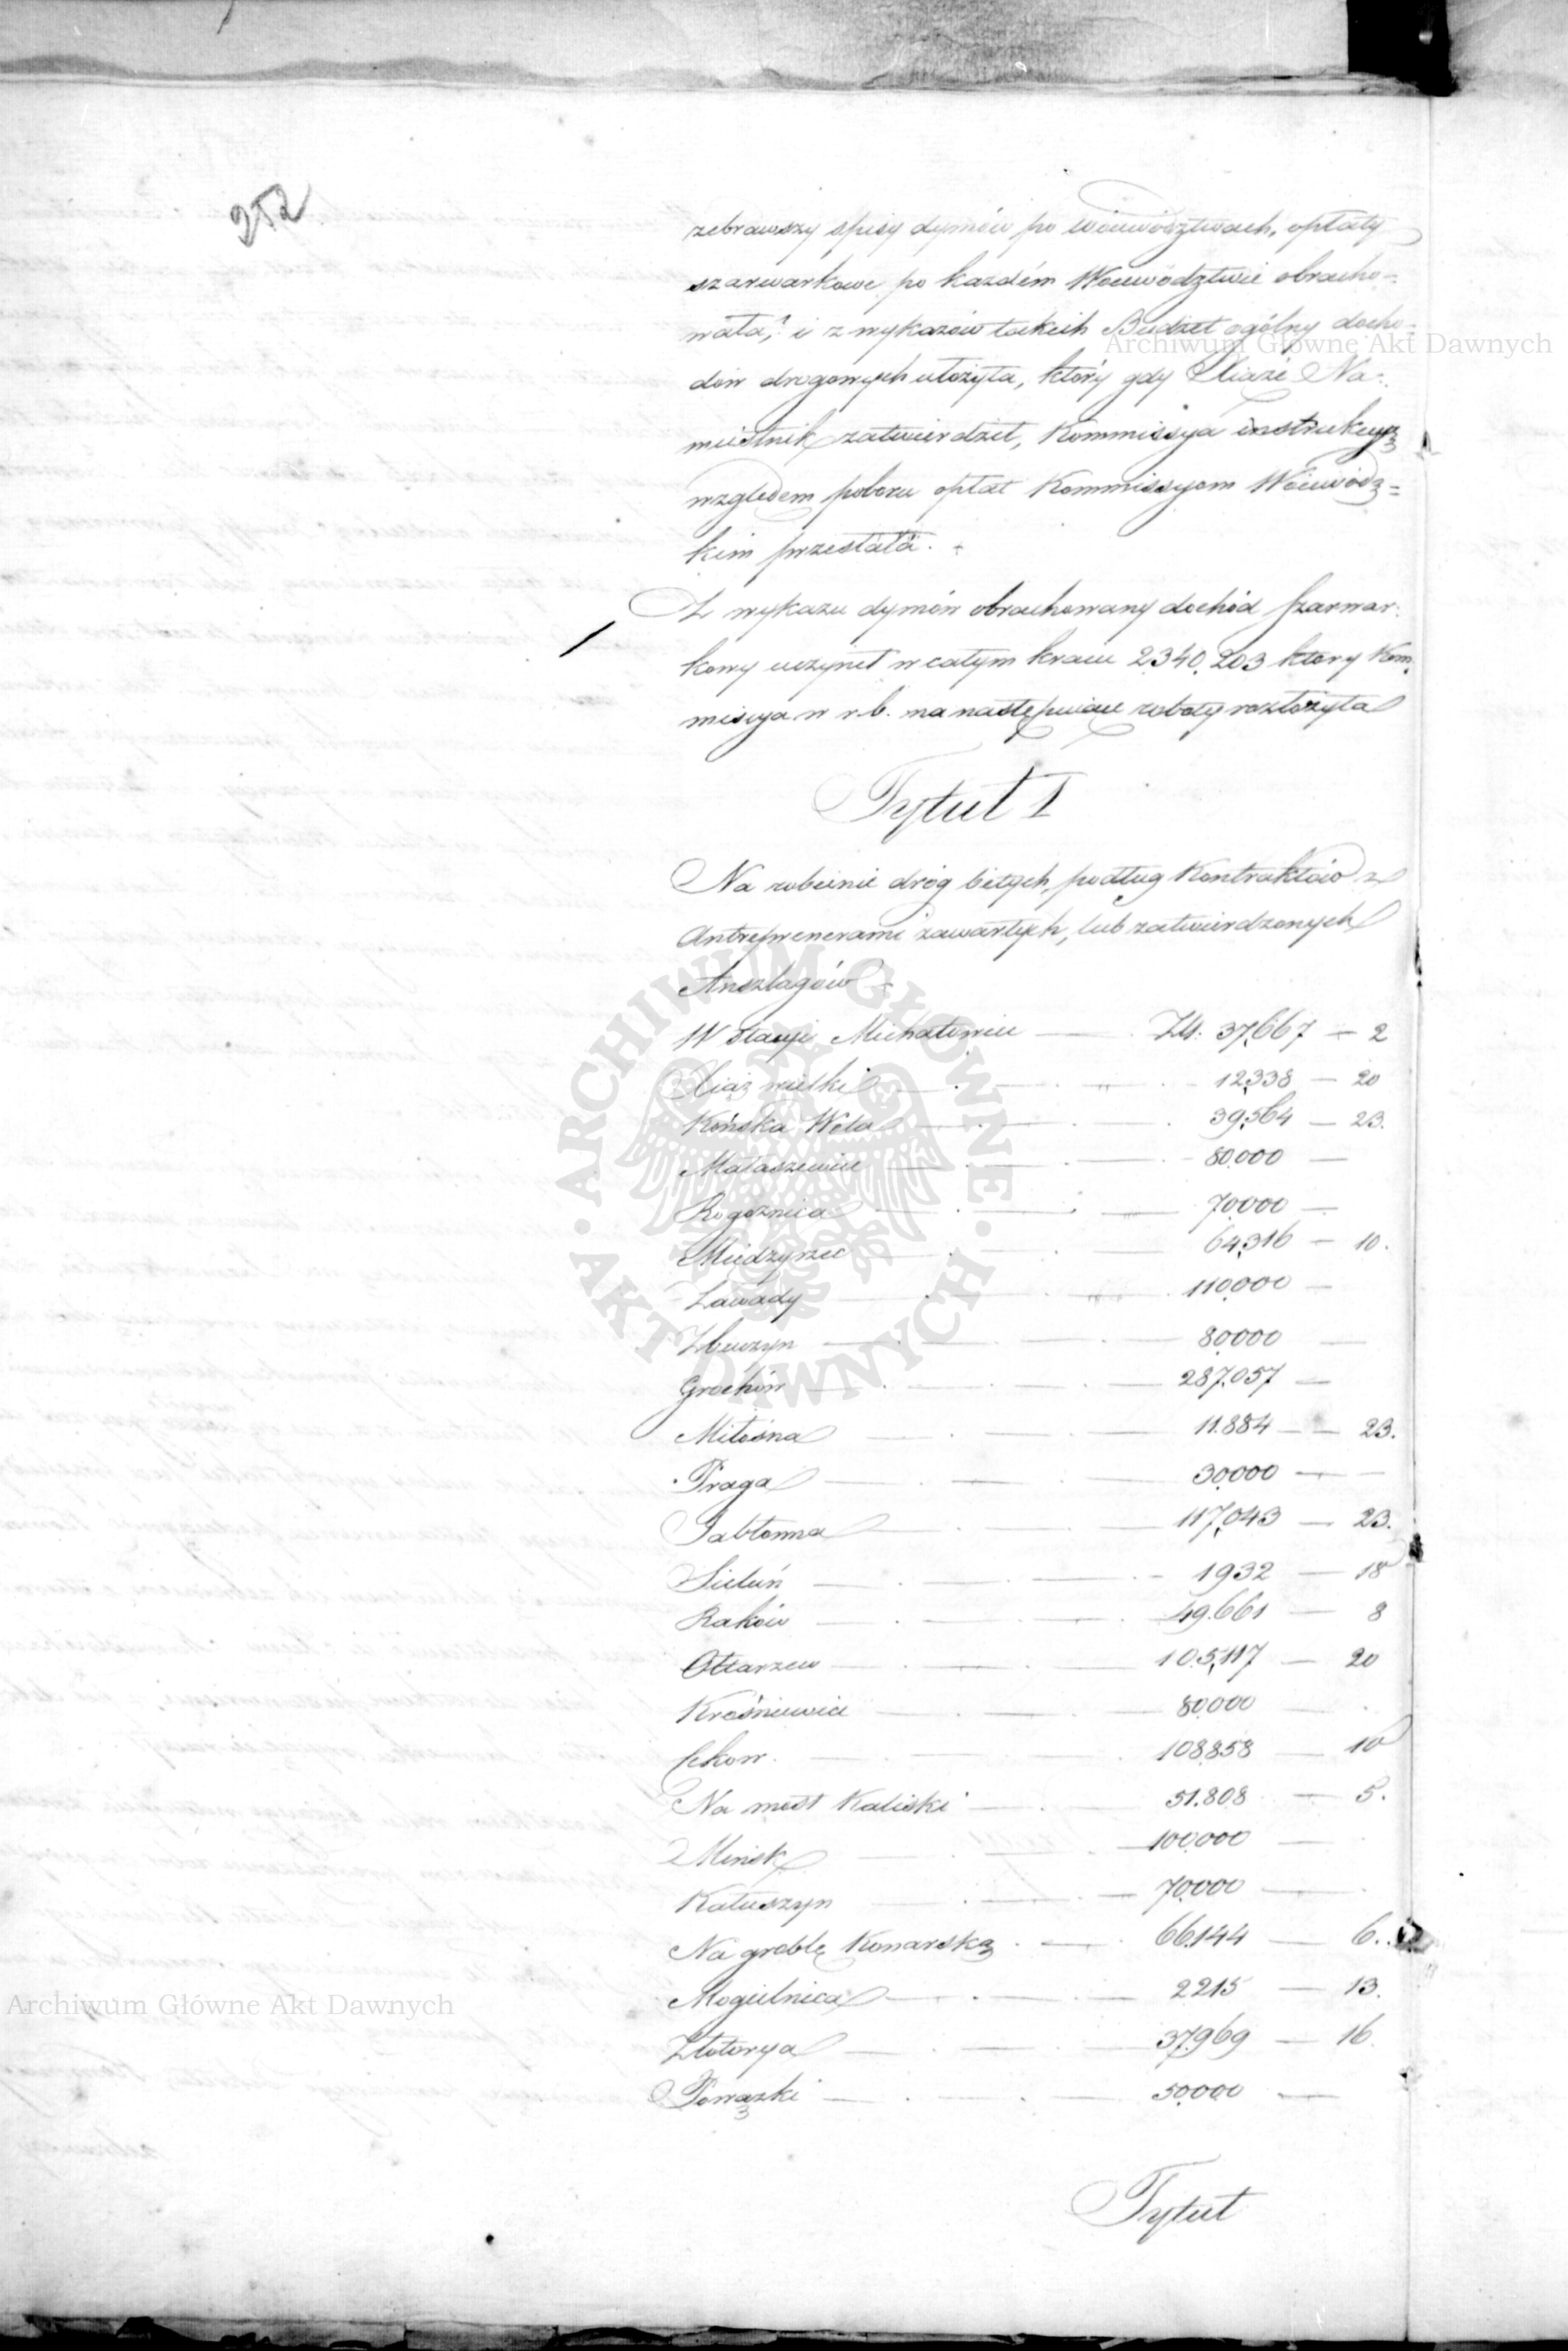 252
zebrawszy spisy dymów po wóiewództwach, opłaty
szarwarkowe po każdém Woiewództwie obracho=
wała, i z wykazów takich Budżet ogólny docho=
Archiwum Główne Akt Dawnych
dów drogowych ułożyła, który gdy Xiąże Na=
miestnik zatwierdził, Kommissya instrukcyą
względem poboru opłat Kommissyom Wóiewódz=
kim przesłała.
Z wykazu dymów obrachowany dochód Szarwar=
kowy uczynił w całym kraiu 2.340.203 który Kom=
missya w r.b. na następuiące roboty rozłożyła
Tytuł I
Na robienie dróg bitych, podług Kontraktów z
Antreprenerami zawartych, lub zatwierdzonych
Anszlagów =
W Stacyi Michałowice — Zł: 37,667 — 2
Xiąż wielki — 12,338 — 20
Końska Wola — 39,564 — 23.
Małaszewice — 80,000 —
Rogoźnica — 70,000 —
Międzyrzec — 64,316 — 10.
Zawady — 110,000 —
Zbuczyn — 80,000 —
Grochów — 287,057 —
Miłosna — 11.884 — 23.
Praga — 30,000 —
Jabłonna — 117,043 — 23.
Sieluń — 1932 — 18
Raków — 49.661 — 8
Ołtarzew — 105,117 — 20
Krośniewice — 80,000 —
— 108,858 — 10
Na most Kaliski — 51.808 — 5.
Mińsk — 100,000 —
Kałuszyn — 70,000 —
Na groblę Konarską — 66,144 — 6.
Mogielnica — 2215 — 13.
Archiwum Główne Akt Dawnych
Złotorya — 37,969 — 16.
Powązki — 50,000 —
Tytuł
ARCHIWUM GŁÓWNE · AKT DAWNYCH ·